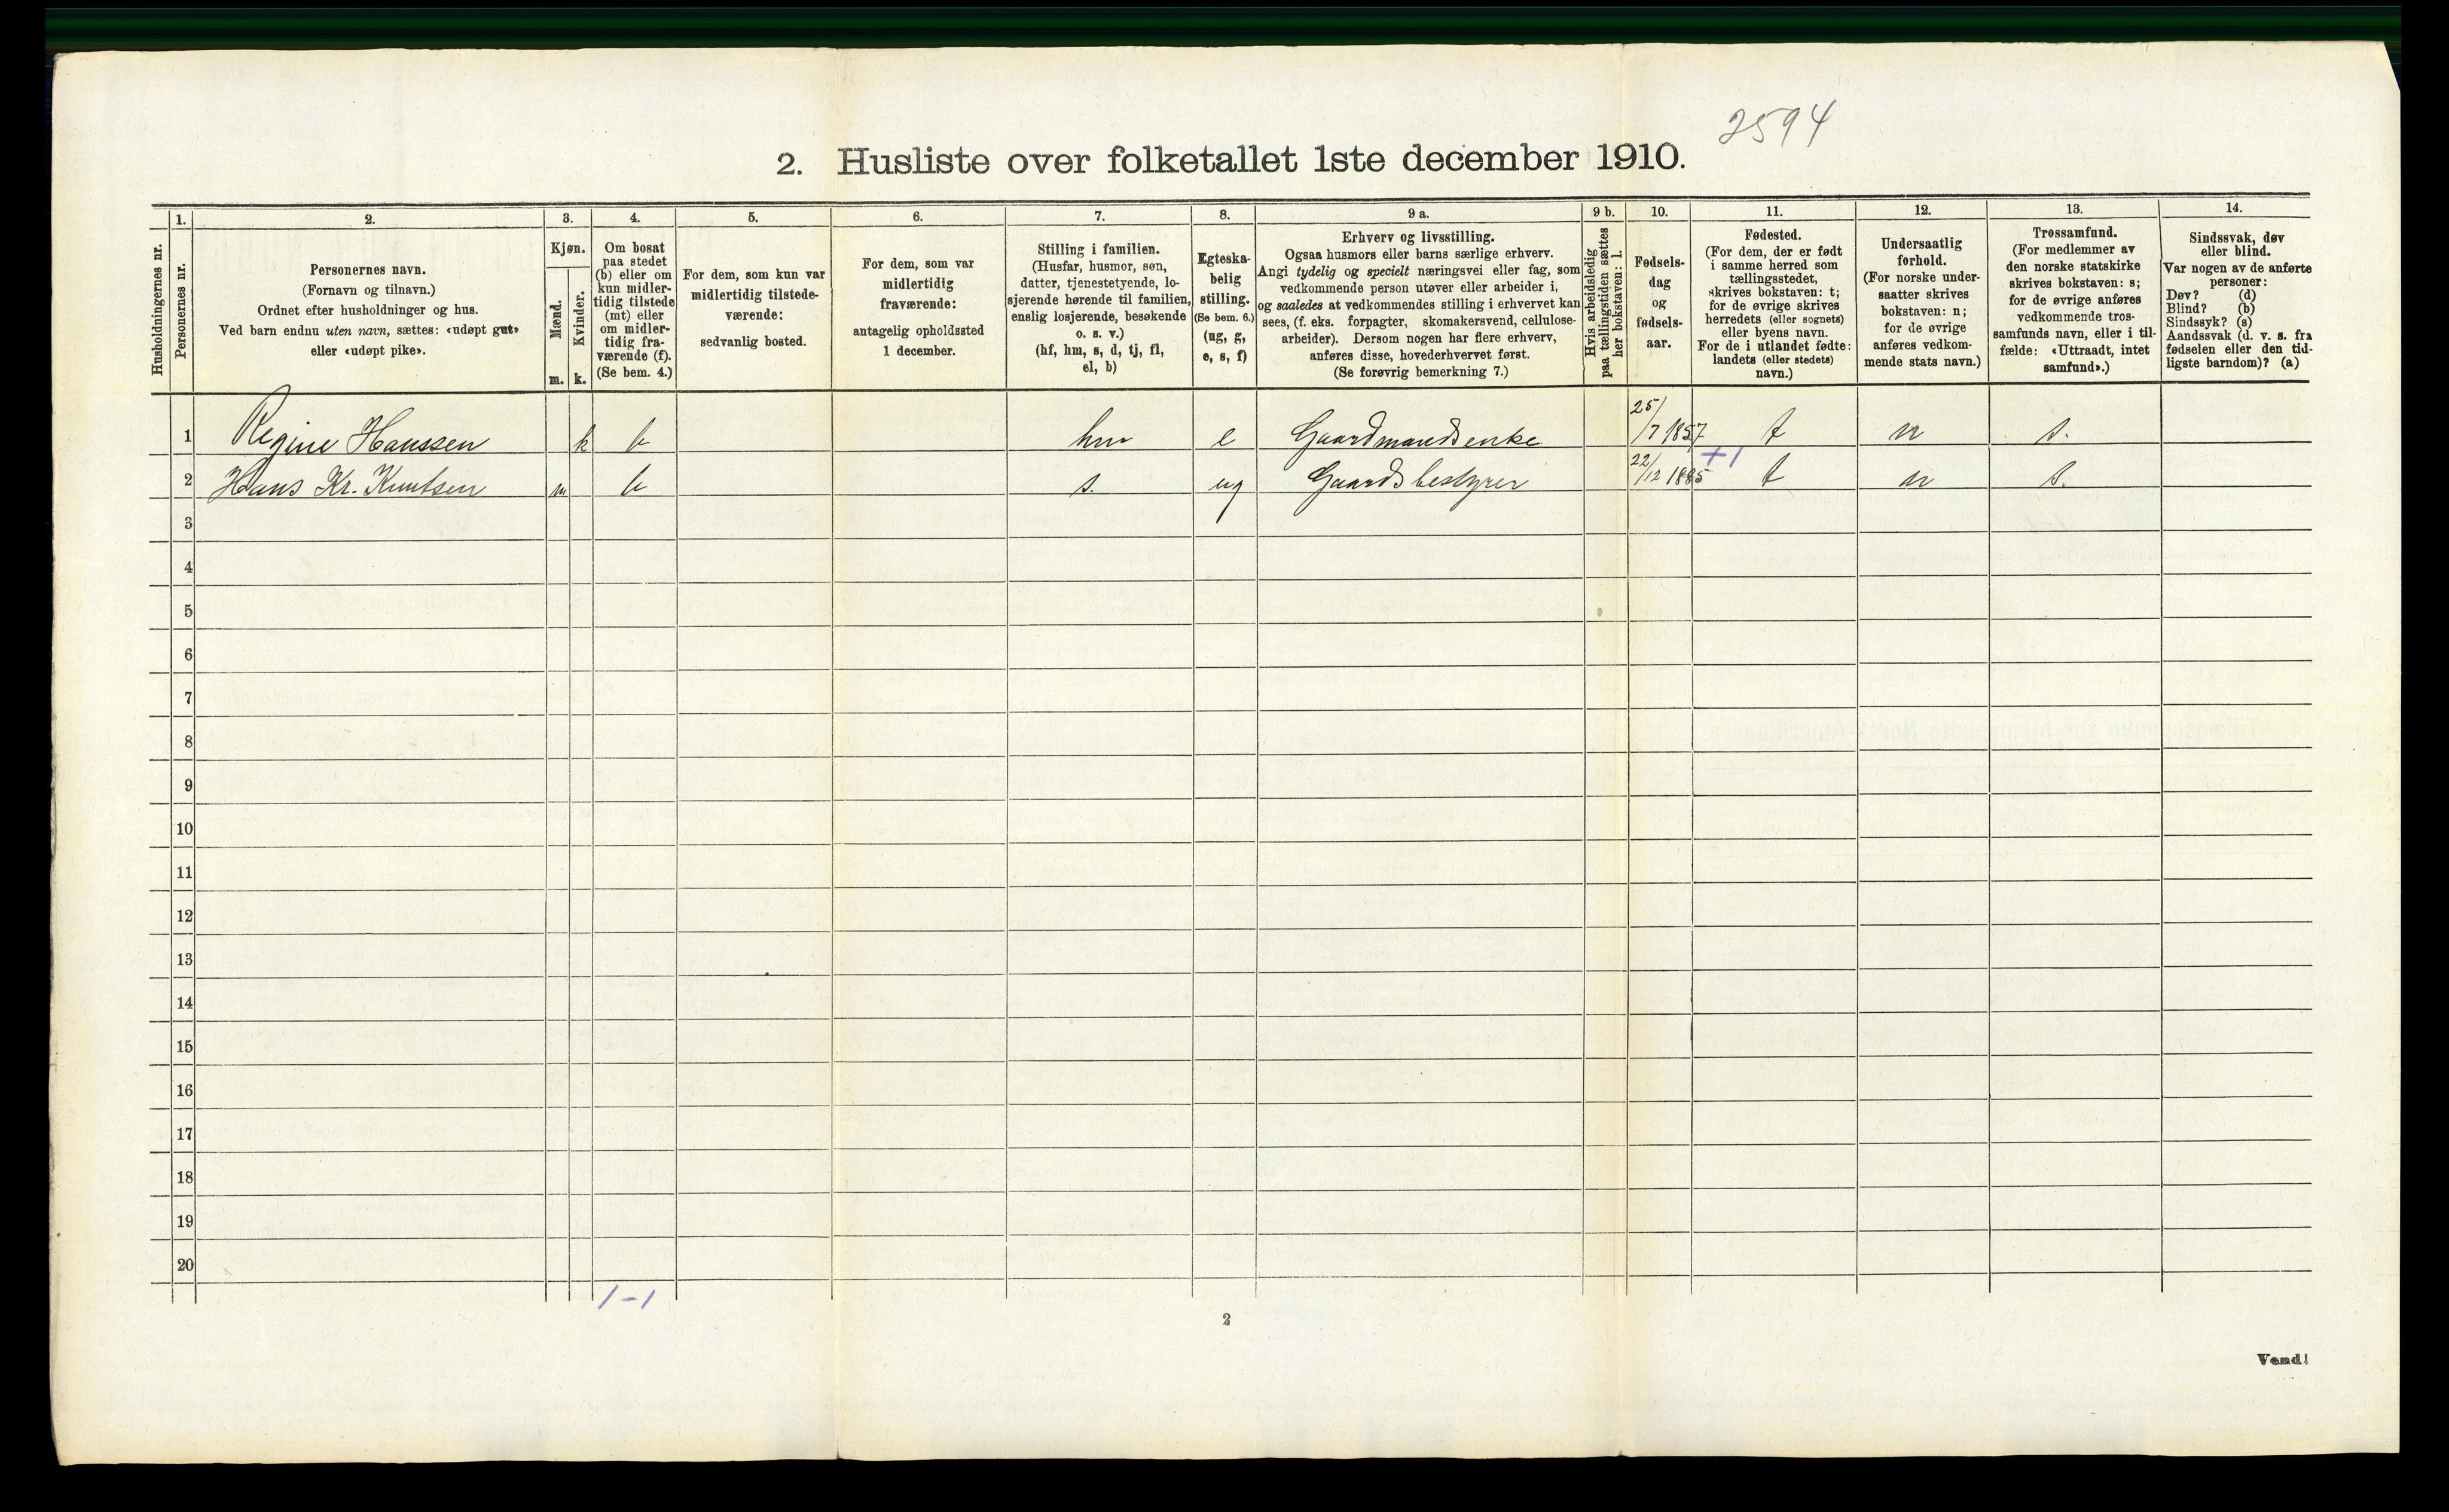 2594
2. Husliste over folketallet 1ste december 1910.
Husholdningernes nr.
1.
Personernes nr.
2.
Personernes navn.
(Fornavn og tilnavn.)
Ordnet efter husholdninger og hus.
Ved barn endnu uten navn, sættes: «udøpt gut»
eller «udøpt pike».
3.
Kjøn.
Mænd.
Kvinder.
m.
k.
4.
Om bosat
paa stedet
(b) eller om
kun midler-
tidig tilstede
(mt) eller
om midler-
tidig fra-
værende (f).
(Se bem. 4.)
5.
For dem, som kun var
midlertidig tilstede-
værende:
sedvanlig bosted.
6.
For dem, som var
midlertidig
fraværende:
antagelig opholdssted
1 december.
7.
Stilling i familien.
(Husfar, husmor, søn,
datter, tjenestetyende, lo-
sjerende hørende til familien,
enslig losjerende, besøkende
o. s. v.)
(hf, hm, s, d, tj, fl,
el, b)
8.
Egteska-
belig
stilling.
(Se bem. 6.)
(ug, g,
e, s, f)
9 a.
Erhverv og livsstilling.
Ogsaa husmors eller barns særlige erhverv.
Angi tydelig og specielt næringsvei eller fag, som
vedkommende person utøver eller arbeider i,
og saaledes at vedkommendes stilling i erhvervet kan
sees, (f. eks. forpagter, skomakersvend, cellulose-
arbeider). Dersom nogen har flere erhverv,
anføres disse, hovederhvervet først.
(Se forøvrig bemerkning 7.)
9 b.
Hvis arbeidsledig
paa tællingstiden sættes
her bokstaven: l.
10.
Fødsels-
dag
og
fødsels-
aar.
11.
Fødested.
(For dem, der er født
i samme herred som
tællingsstedet,
skrives bokstaven: t;
for de øvrige skrives
herredets (eller sognets)
eller byens navn.
For de i utlandet fødte:
landets (eller stedets)
navn.)
12.
Undersaatlig
forhold.
(For norske under-
saatter skrives
bokstaven: n;
for de øvrige
anføres vedkom-
mende stats navn.)
13.
Trossamfund.
(For medlemmer av
den norske statskirke
skrives bokstaven: s;
for de øvrige anføres
vedkommende tros-
samfunds navn, eller i til-
fælde: «Uttraadt, intet
samfund».)
14.
Sindssvak, døv
eller blind.
Var nogen av de anførte
personer:
Døv? (d)
Blind? (b)
Sindssyk? (s)
Aandssvak (d. v. s. fra
fødselen eller den tid-
ligste barndom)? (a)
1 Regine Hanssen k b hm e Gaardmandsenke 25/7 1857 t n s.
+1
2 Hans Kr. Knutsen m b s. ug Gaardsbestyrer 22/12 1885 t n s.
3
4
5
6
7
8
9
10
11
12
13
14
15
16
17
18
19
20
1-1
2
Vend!